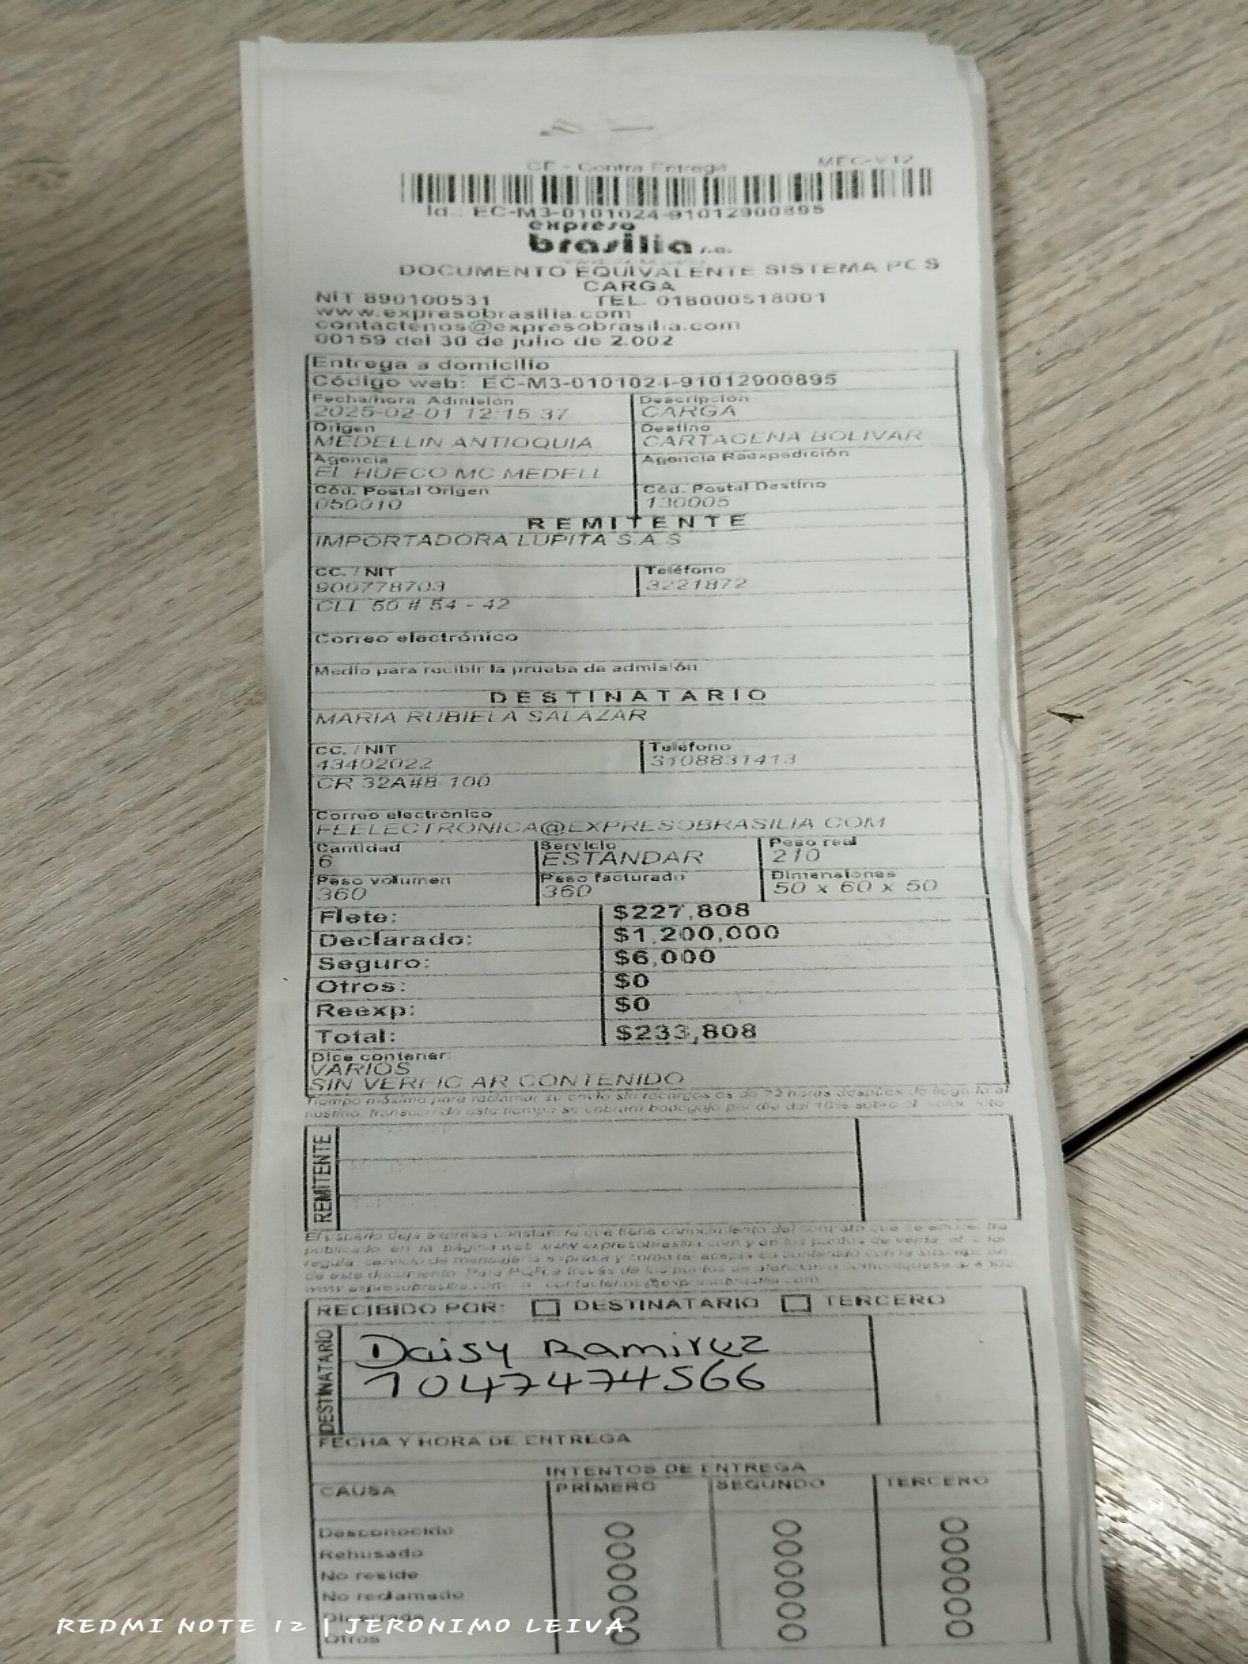 CE - Contra Entrega MEC-V12
Id.: EC-M3-0101024-91012900895
expreso
brasilia s.a.
DOCUMENTO EQUIVALENTE SISTEMA POS
CARGA
NIT 890100531 TEL. 018000518001
www.expresobrasilia.com
contactenos@expresobrasilia.com
00159 del 30 de julio de 2.002
Entrega a domicilio
Código web: EC-M3-0101024-91012900895
Fecha/hora. Admisión Descripción
2025-02-01 12:15:37 CARGA
Origen Destino
MEDELLIN ANTIOQUIA CARTAGENA BOLIVAR
Agencia Agencia Reexpedición
EL HUECO MC MEDELL
Cód. Postal Origen Cód. Postal Destino
050010 130005
REMITENTE
IMPORTADORA LUPITA S.A.S
CC. / NIT Teléfono
900778703 3221872
CLL 50 # 54 - 42
Correo electrónico
Medio para recibir la prueba de admisión
DESTINATARIO
MARIA RUBIELA SALAZAR
CC. / NIT Teléfono
43402022 3108831413
CR 32A#8-100
Correo electrónico
FEELECTRONICA@EXPRESOBRASILIA.COM
Cantidad Servicio Peso real
6 ESTANDAR 210
Peso volumen Peso facturado Dimensiones
360 360 50 x 60 x 50
Flete: $227,808
Declarado: $1,200,000
Seguro: $6,000
Otros: $0
Reexp: $0
Total: $233,808
Dice contener:
VARIOS
SIN VERIFIC AR CONTENIDO
Tiempo máximo para reclamar su envío sin recargos es de 72 horas después de llegada al
destino, transcurrido este tiempo se cobrará bodegaje por día del 10% sobre el valor flete
REMITENTE
El usuario deja expresa constancia que tiene conocimiento del contrato que se encuentra
publicado en la página web www.expresobrasilia.com y en los puntos de venta, el cual
regula servicio de mensajería expresa y como tal acepta su contenido con la suscripción
de este documento. Para PQR a través de los puntos de atención o comuníquese a
www.expresobrasilia.com o contactenos@expresobrasilia.com
RECIBIDO POR: DESTINATARIO TERCERO
DESTINATARIO
Daisy Ramirez
1047474566
FECHA Y HORA DE ENTREGA
INTENTOS DE ENTREGA
CAUSA PRIMERO SEGUNDO TERCERO
Desconocido
Rehusado
No reside
No reclamado
Otros
REDMI NOTE 12 | JERONIMO LEIVA